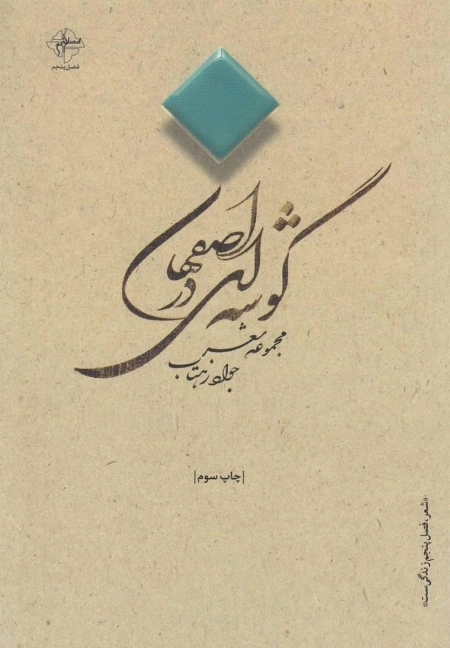 فصل پنجم
گوشه‌ای در اصفهان
مجموعه شعر
جواد زهتاب
|چاپ سوم|
«شعر، فصل پنجم زندگی‌ست»